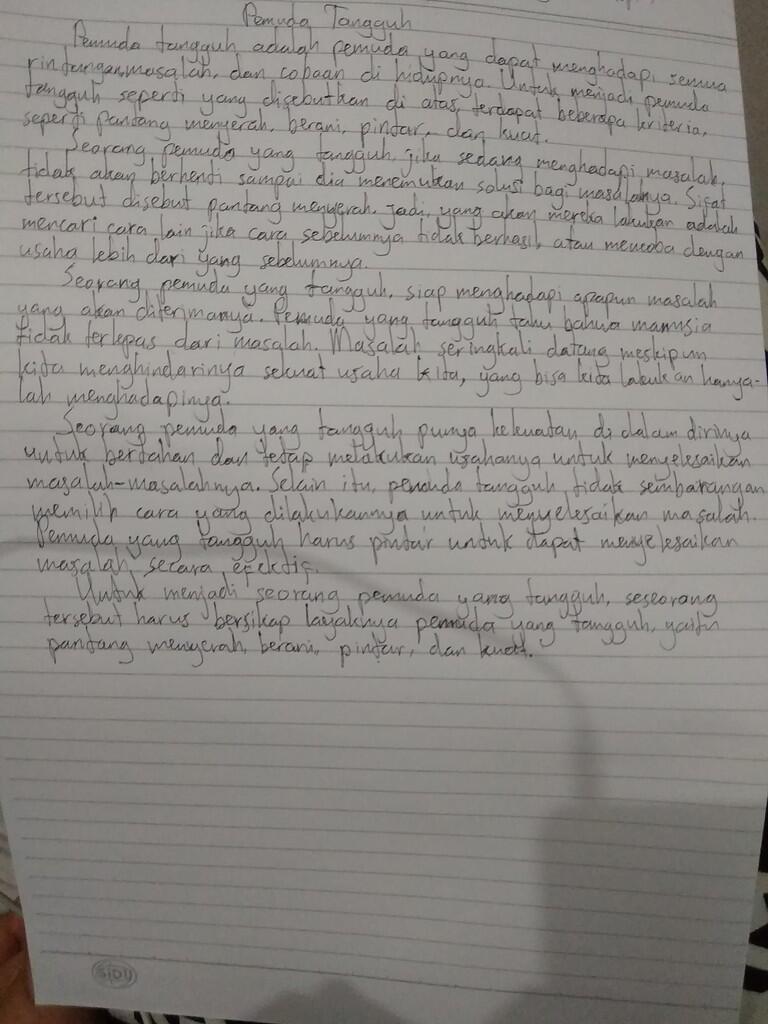 Pemuda Tangguh
Pemuda tangguh adalah pemuda yang dapat menghadapi semua
rintangan, masalah, dan cobaan di hidupnya. Untuk menjadi pemuda
tangguh seperti yang disebutkan di atas, terdapat beberapa kriteria,
seperti pantang menyerah, berani, pintar, dan kuat.
Seorang pemuda yang tangguh, jika sedang menghadapi masalah,
tidak akan berhenti sampai dia menemukan solusi bagi masalanya. Sifat
tersebut disebut pantang menyerah. Jadi, yang akan mereka lakukan adalah
mencari cara lain jika cara sebelumnya tidak berhasil, atau mencoba dengan
usaha lebih dari yang sebelumnya.
Seorang pemuda yang tangguh, siap menghadapi apapun masalah
yang akan diterimanya. Pemuda yang tangguh tahu bahwa manusia
tidak terlepas dari masalah. Masalah seringkali datang meskipun
kita menghindarinya sekuat usaha kita, yang bisa kita lakukan hanya-
lah menghadapinya.
Seorang pemuda yang tangguh punya kekuatan di dalam dirinya
untuk bertahan dan tetap melakukan usahanya untuk menyelesaikan
masalah-masalahnya. Selain itu, pemuda tangguh tidak sembarangan
memilih cara yang dilakukannya untuk menyelesaikan masalah.
Pemuda yang tangguh harus pintar untuk dapat menyelesaikan
masalah secara efektif.
Untuk menjadi seorang pemuda yang tangguh, seseorang
tersebut harus bersikap layaknya pemuda yang tangguh, yaitu
pantang menyerah, berani, pintar, dan kuat.
SIDU